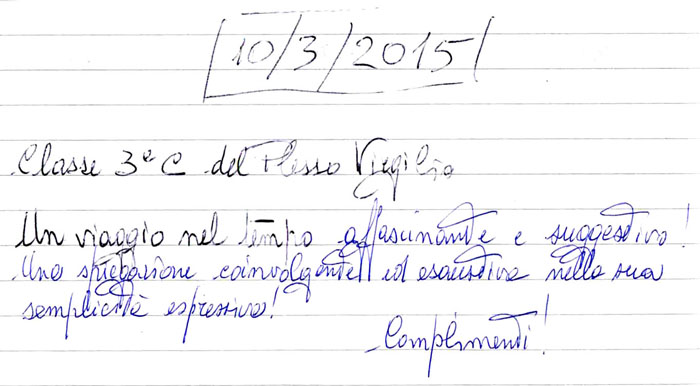 10/3/2015
Classe 3ª C del Plesso Virgilio
Un viaggio nel tempo affascinante e suggestivo!
Una spiegazione coinvolgente ed esaustiva nella sua
semplicità espressiva!
Complimenti!